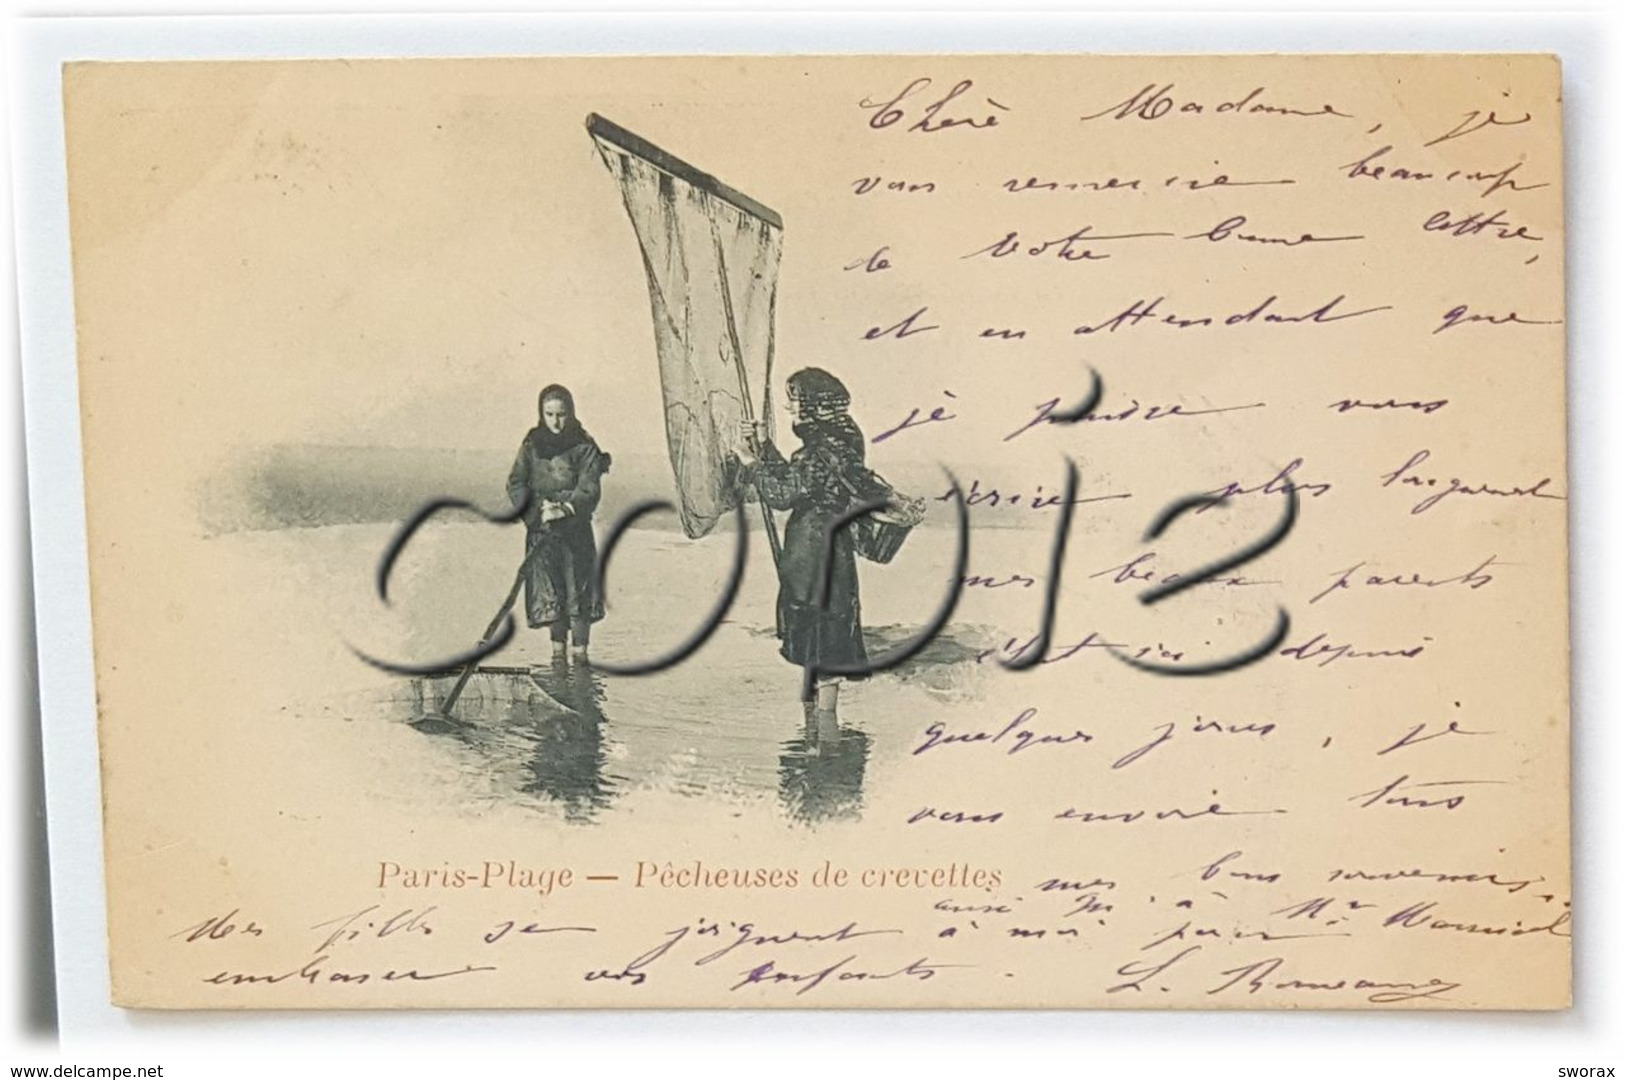 Chère Madame, je
vous remercie beaucoup
de votre bonne lettre,
et en attendant que
je puisse vous
écrire plus longuement
mes beaux parents
étant ici depuis
quelques jours, je
vous envoie tous
mes bons souvenirs.
Paris-Plage — Pêcheuses de crevettes
ainsi à Mr
Mes filles se joignent à moi pour
embrasser vos enfants. L.
COPIE
www.delcampe.net
sworax